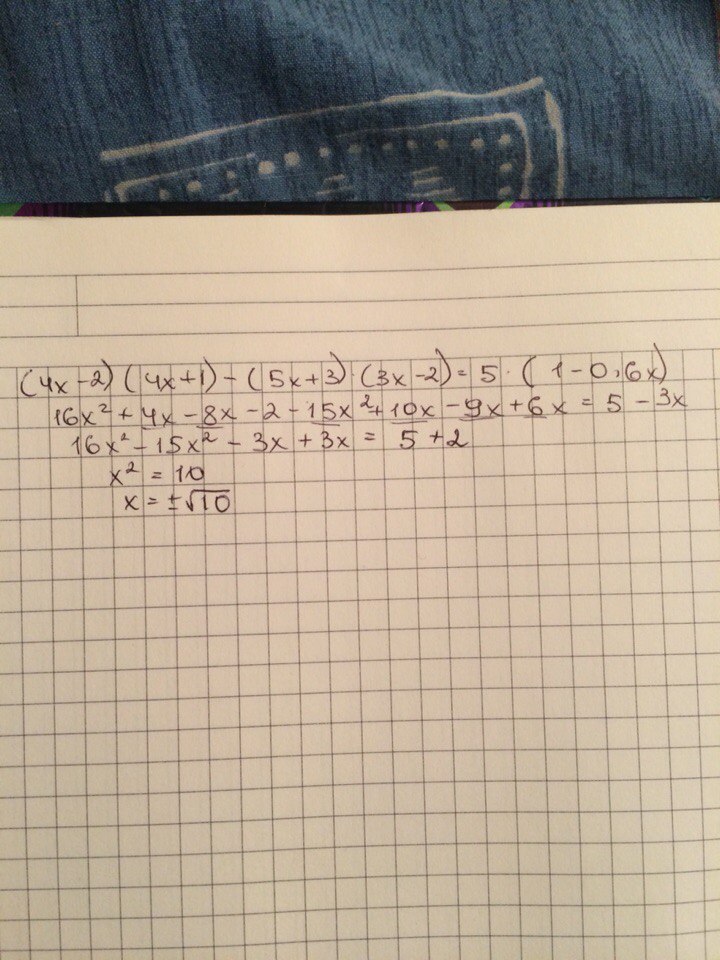 (4x-2)(4x+1)-(5x+3)·(3x-2)=5·(1-0,6x)
16x²+4x-8x-2-15x²+10x-9x+6x=5-3x
16x²-15x²-3x+3x=5+2
x²=10
x=±√10